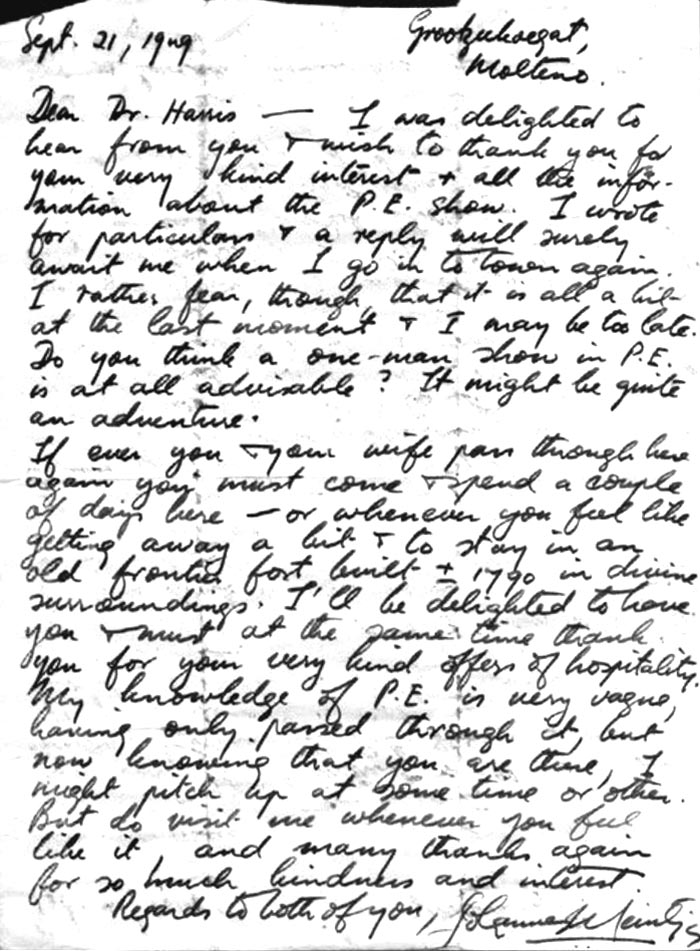 Sept. 21, 1949
Grootzeekoegat,
Molteno.
Dear Dr. Harris — I was delighted to
hear from you & wish to thank you for
your very kind interest & all the infor-
mation about the P.E. show. I wrote
for particulars & a reply will surely
await me when I go in to town again.
I rather fear, though, that it is all a bit
at the last moment & I may be too late.
Do you think a one-man show in P.E.
is at all advisable? It might be quite
an adventure.
If ever you & your wife pass through here
again you must come & spend a couple
of days here — or whenever you feel like
getting away a bit & to stay in an
old frontier fort built ± 1790 in divine
surroundings. I'll be delighted to have
you & must at the same time thank
you for your very kind offers of hospitality.
My knowledge of P.E. is very vague,
having only passed through it, but
now knowing that you are there, I
might pitch up at some time or other.
But do visit me whenever you feel
like it, and many thanks again
for so much kindness and interest.
Regards to both of you, Johannes Meintjes